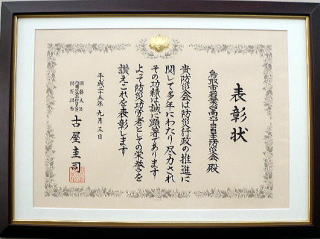 表彰状
鳥取市若葉台南七丁目自主防災会 殿
貴防災会は防災行政の推進に
関して多年にわたり尽力され
その功績は誠に顕著であります
よって防災功労者としての栄誉を
讃えこれを表彰します
平成二十五年九月三日
古屋圭司